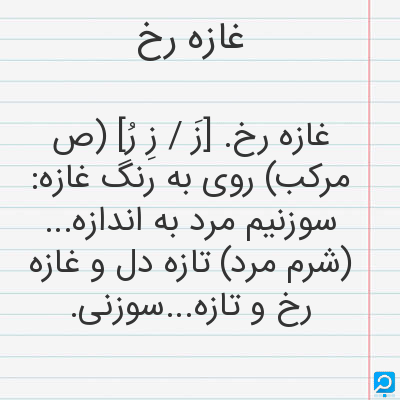 غازه رخ
غازه رخ. [زَ / زِ رُ] (ص
مرکب) روی به رنگ غازه:
سوزنیم مرد به اندازه...
(شرم مرد) تازه دل و غازه
رخ و تازه...سوزنی.